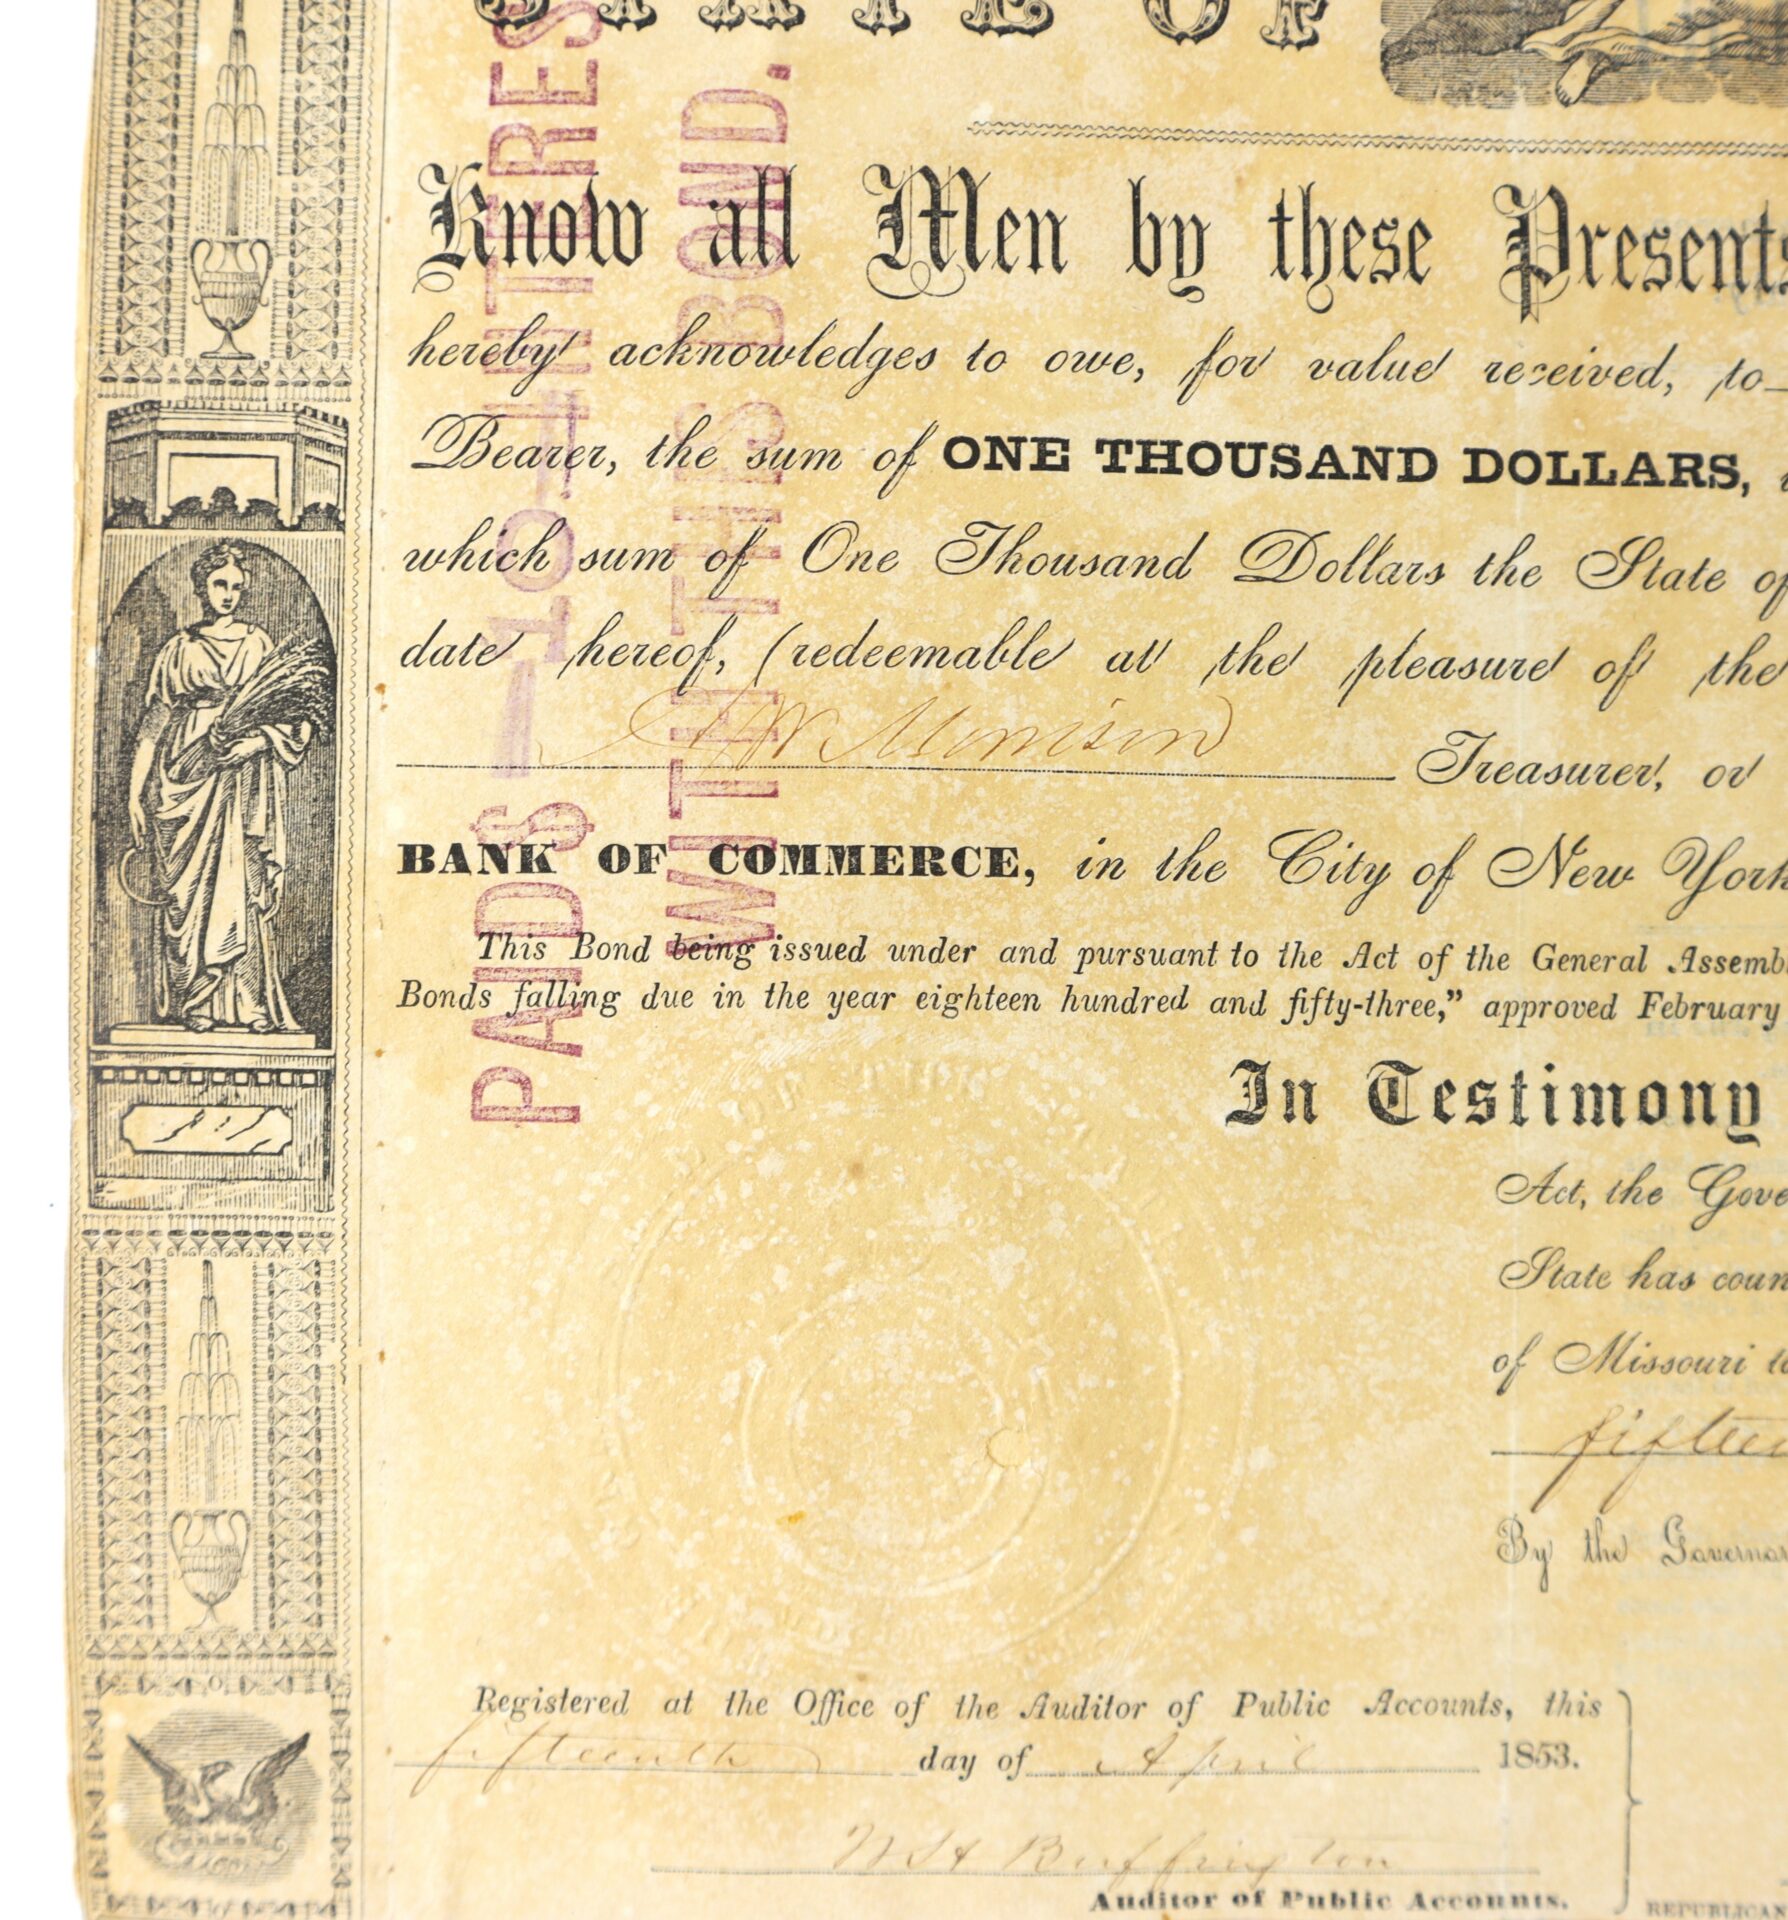 STATE OF
Know all Men by these Presents
hereby acknowledges to owe, for value received, to
Bearer, the sum of ONE THOUSAND DOLLARS,
which sum of One Thousand Dollars the State of
date hereof, (redeemable at the pleasure of the
W Morrison
Treasurer, or
BANK OF COMMERCE, in the City of New York
This Bond being issued under and pursuant to the Act of the General Assembl
Bonds falling due in the year eighteen hundred and fifty-three," approved February
In Testimony
Act, the Gove
State has coun
of Missouri to
fifteen
By the Governor
Registered at the Office of the Auditor of Public Accounts, this
fifteenth day of April 1853.
W H Buffington
Auditor of Public Accounts.
REPUBLICAN
PAID $ 10 INTERES
WITH THIS BOND.